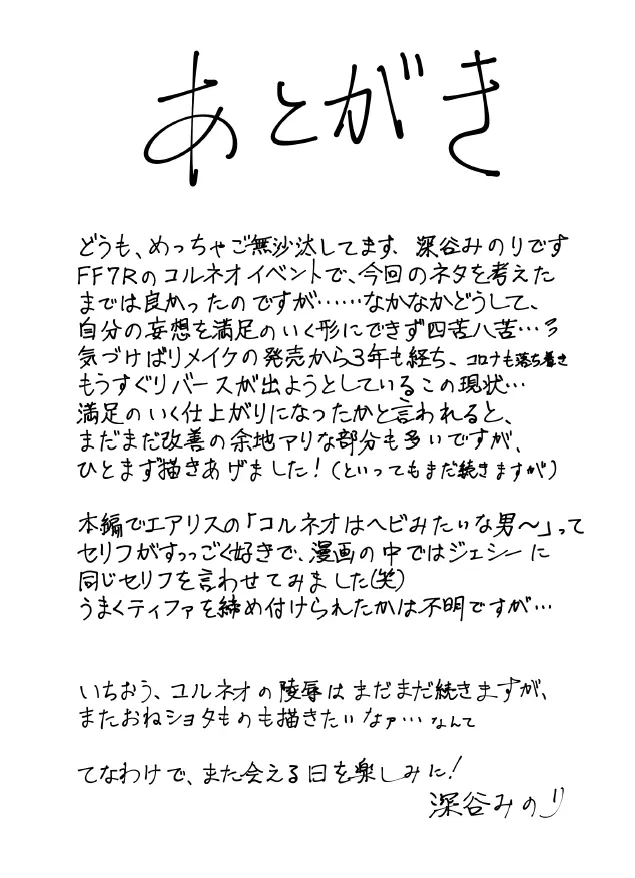 あとがき
どうも、めっちゃご無沙汰してます、深谷みのりです
FF7Rのコルネオイベントで、今回のネタを考えた
までは良かったのですが……なかなかどうして、
自分の妄想を満足のいく形にできず四苦八苦…ろ
気づけばリメイクの発売から3年も経ち、コロナも落ち着き
もうすぐリバースが出ようとしているこの現状…
満足のいく仕上がりになったかと言われると、
まだまだ改善の余地アリな部分も多いですが、
ひとまず描きあげました！（といってもまだ続きますが）
本編でエアリスの「コルネオはヘビみたいな男〜」って
セリフがすっっごく好きで、漫画の中ではジェシーに
同じセリフを言わせてみました(笑)
うまくティファを締め付けられたかは不明ですが…
いちおう、コルネオの陵辱はまだまだ続きますが、
またおねショタものも描きたいなァ…なんて
てなわけで、また会える日を楽しみに！
深谷みのり